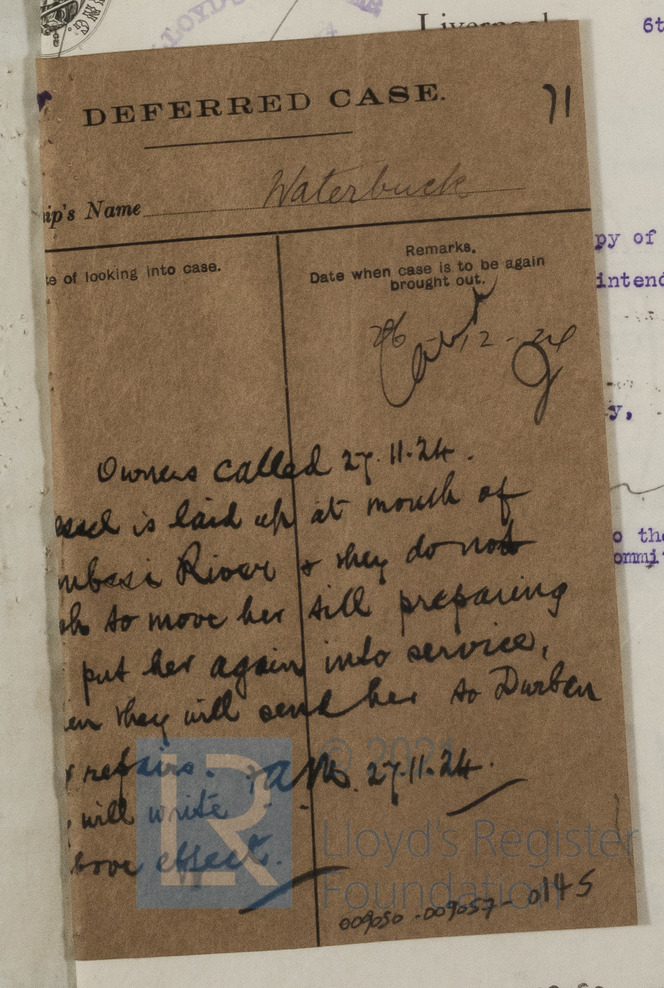 Liverpool
6t
DEFERRED CASE.
71
ip's Name Waterbuck
te of looking into case.
Remarks.
Date when case is to be again
brought out.
26 12-24
py of
intend
y,
o the
ommit
Owners called 27.11.24.
essel is laid up at mouth of
mbesi River & they do not
sh to move her till preparing
put her again into service,
en they will send her to Durban
r repairs. 27.11.24.
will write
bove effect.
© 2021
LR
Lloyd's Register
Foundation
009050-009057-0145